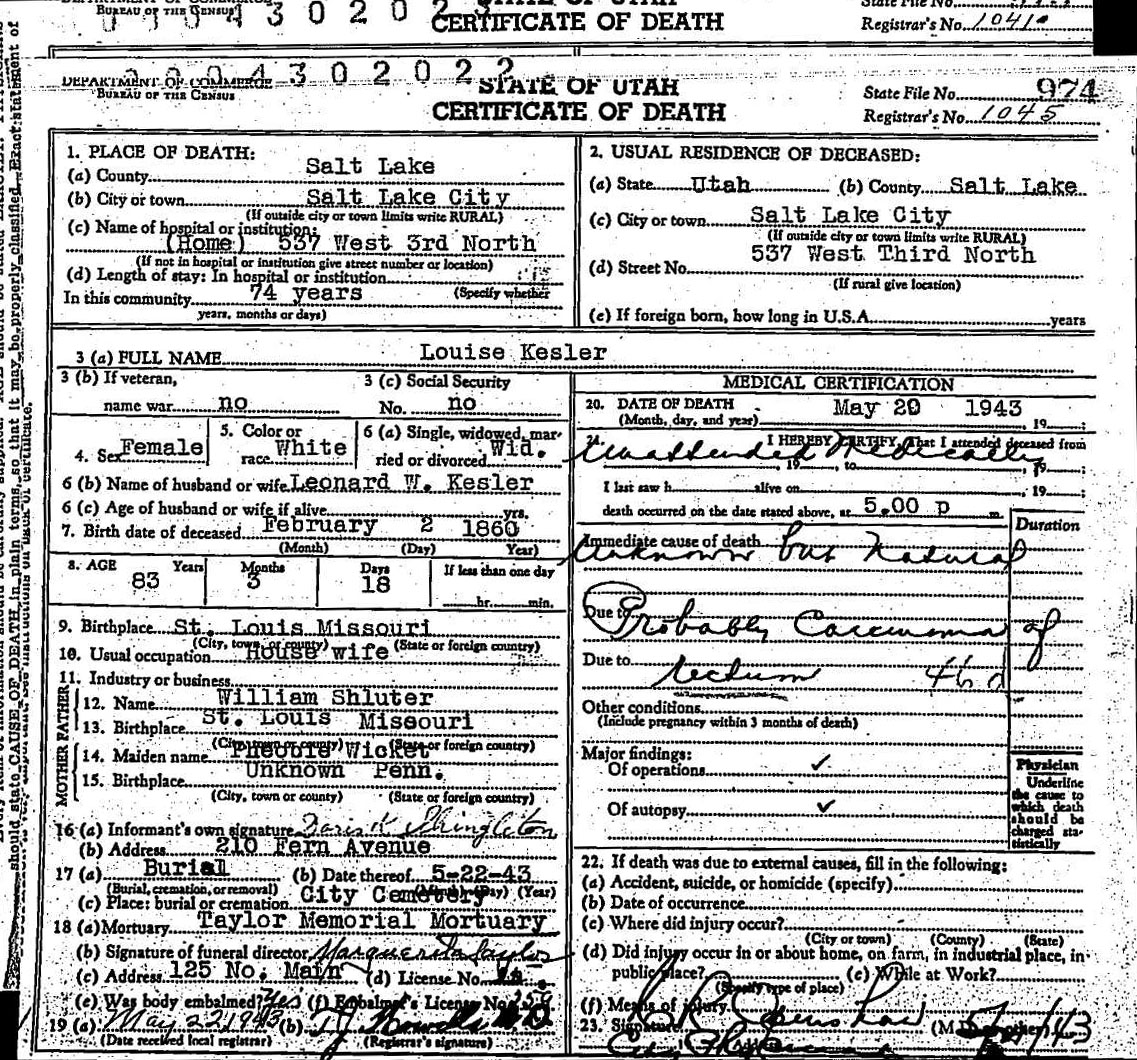 BUREAU OF THE CENSUS
CERTIFICATE OF DEATH
State File No.
Registrar's No. 1041
DEPARTMENT OF COMMERCE
BUREAU OF THE CENSUS
STATE OF UTAH
CERTIFICATE OF DEATH
State File No. 974
Registrar's No. 1045
1. PLACE OF DEATH:
(a) County Salt Lake
(b) City or town Salt Lake City
(If outside city or town limits write RURAL)
(c) Name of hospital or institution:
(Home) 537 West 3rd North
(If not in hospital or institution give street number or location)
(d) Length of stay: In hospital or institution
In this community 74 years (Specify whether
years, months or days)
2. USUAL RESIDENCE OF DECEASED:
(a) State Utah (b) County Salt Lake
(c) City or town Salt Lake City
(If outside city or town limits write RURAL)
(d) Street No. 537 West Third North
(If rural give location)
(e) If foreign born, how long in U.S.A. years
3 (a) FULL NAME Louise Kesler
3 (b) If veteran,
name war no
3 (c) Social Security
No. no
4. Sex Female
5. Color or
race White
6 (a) Single, widowed, mar-
ried or divorced Wid.
6 (b) Name of husband or wife Leonard W. Kesler
6 (c) Age of husband or wife if alive yrs.
7. Birth date of deceased February 2 1860
(Month) (Day) Year)
8. AGE Years Months Days If less than one day
83 3 18 hr. min.
9. Birthplace St. Louis Missouri
(City, town or county) (State or foreign country)
10. Usual occupation House wife
11. Industry or business
FATHER
12. Name William Shluter
13. Birthplace St. Louis Missouri
(City, town or county) (State or foreign country)
MOTHER
14. Maiden name Wicket
15. Birthplace Unknown Penn.
(City, town or county) (State or foreign country)
16 (a) Informant's own signature Doris K Shingleton
(b) Address 210 Fern Avenue
17 (a) Burial (b) Date thereof 5-22-43
(Burial, cremation, or removal) (Month) (Day) (Year)
(c) Place: burial or cremation City Cemetery
18 (a) Mortuary Taylor Memorial Mortuary
(b) Signature of funeral director Marguerite Taylor
(c) Address 125 No. Main (d) License No.
(e) Was body embalmed? Yes (f) Embalmer's License No.
19 (a) May 22 1943 (b)
(Date received local registrar) (Registrar's signature)
MEDICAL CERTIFICATION
20. DATE OF DEATH May 20 1943
(Month, day, and year) , 19 ;
21. I HEREBY CERTIFY, That I attended deceased from
Unattended Medically
, 19 , to , 19 ;
I last saw h alive on , 19 ;
death occurred on the date stated above, at 5.00 p m.
Duration
Immediate cause of death
Unknown but Natural
Due to Probably Carcinoma of
Due to rectum 46 d
Other conditions
(Include pregnancy within 3 months of death)
Major findings:
Of operations ✓
Of autopsy ✓
Physician
Underline
the cause to
which death
should be
charged sta-
tistically
22. If death was due to external causes, fill in the following:
(a) Accident, suicide, or homicide (specify)
(b) Date of occurrence
(c) Where did injury occur?
(City or town) (County) (State)
(d) Did injury occur in or about home, on farm, in industrial place, in
public place? (e) While at Work?
(Specify type of place)
(f) Means of injury
23. Signature